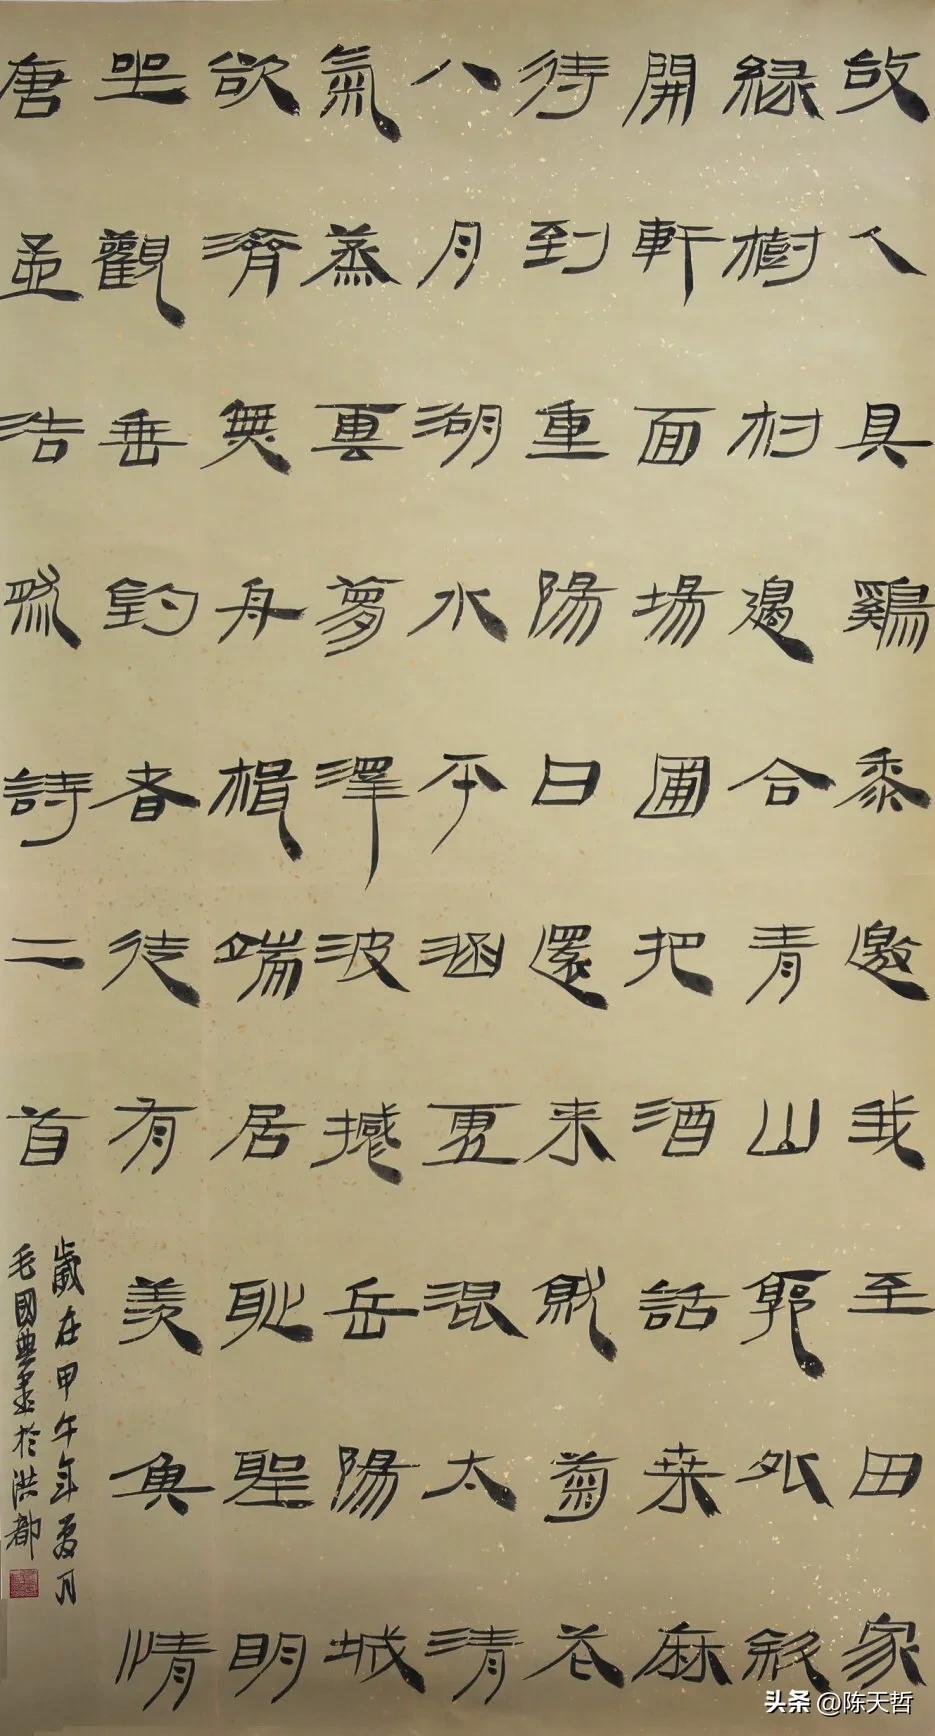 故人具鷄黍邀我至田家
緑樹村邊合青山郭外斜
開軒面場圃把酒話桑麻
待到重陽日還来就菊花
八月湖水平涵虛混太清
氣蒸雲夢澤波撼岳陽城
欲濟無舟楫端居恥聖明
坐觀垂釣者徒有羨魚情
唐孟浩然詩二首
歲在甲午年夏月
毛國典書於洪都
头条 @陈天哲